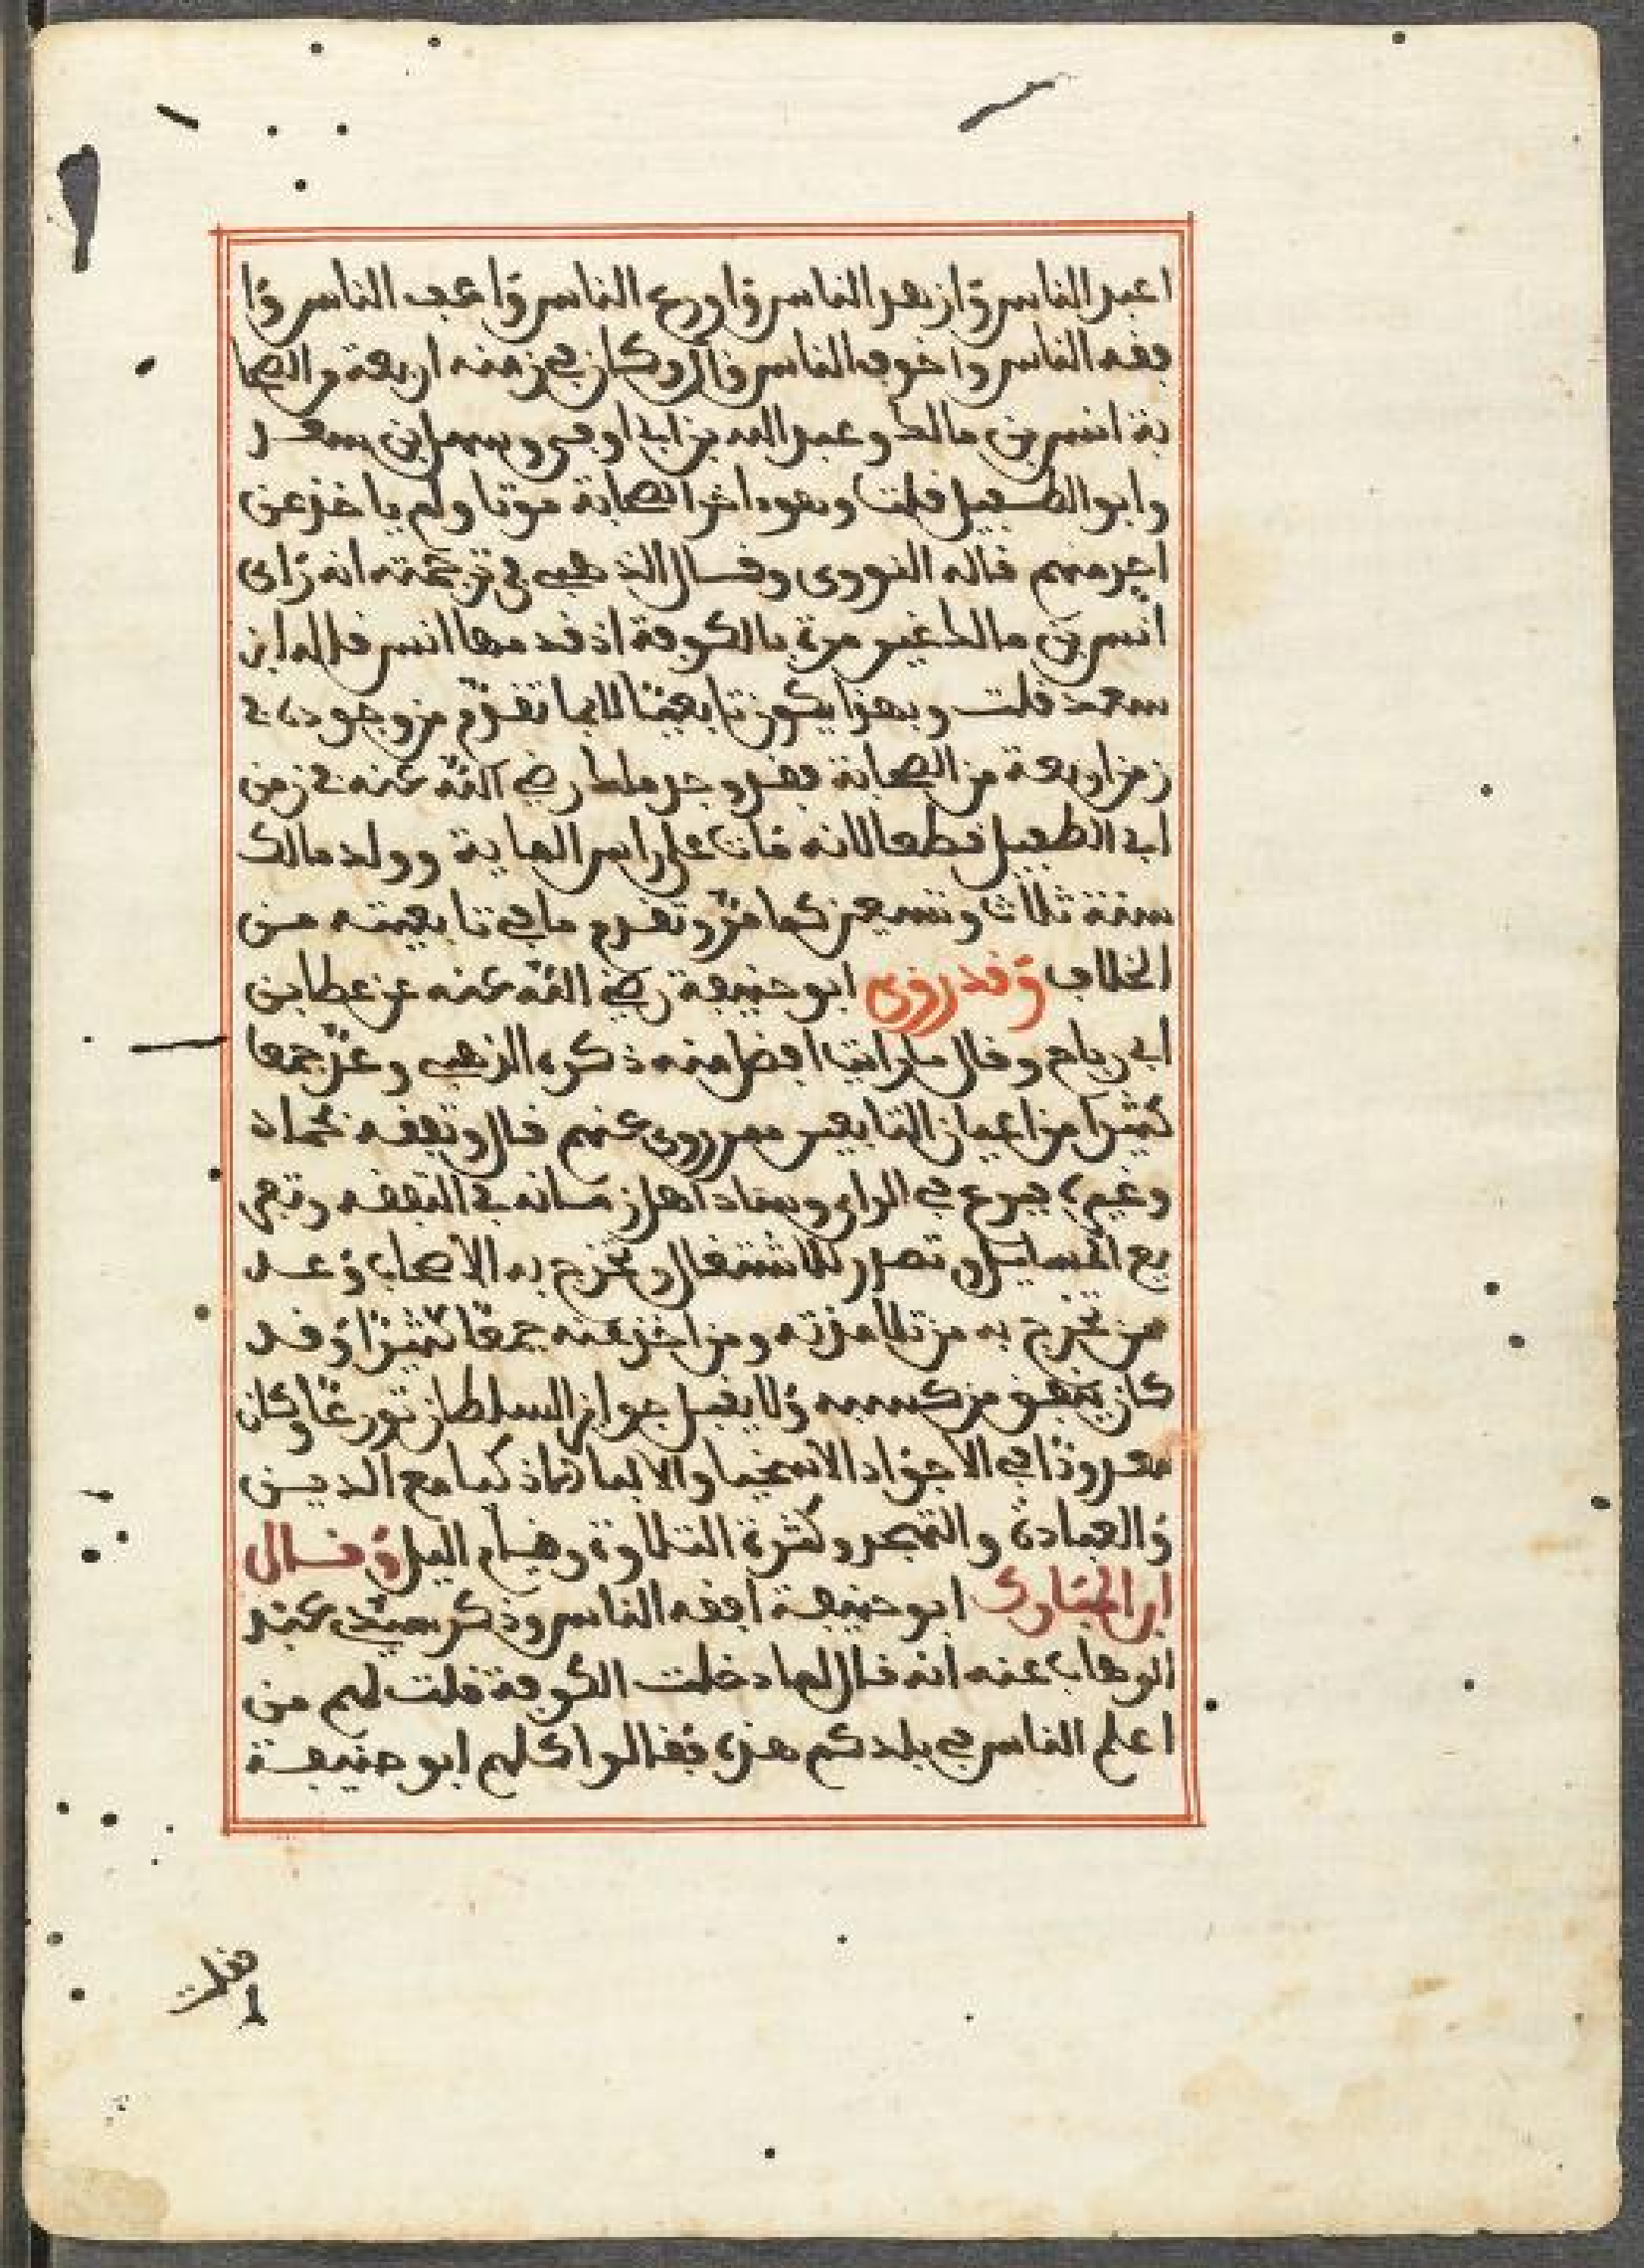 اعبد الناس وازهد الناس واورع الناس واعف الناس وا
فقه الناس واخوف الناس قال وكان في زمنه اربعة من الصحا
بة انس بن مالك وعبد الله بن ابي اوفى وسهل بن سعد
وابو الطفيل قلت وهو اخر الصحابة موتا ولم ياخذ عن
احد منهم قاله النووي وقال الذهبي في ترجمته انه رأى
انس بن مالك غير مرة بالكوفة اذ قدمها انس قاله ابن
سعد قلت وبهذا يكون تابعيا لا بما تقدم من وجوده في
زمن اربعة من الصحابة فقد وجد ملك رضي الله عنه في زمن
ابي الطفيل قطعا لانه مات على راس الماية وولد مالك
سنة ثلاث وتسعين كما مر وتقدم ما في تابعيته من
الخلاف وقد روى ابو حنيفة رضي الله عنه عن عطا بن
ابي رباح وقال ما رايت افضل منه ذكره الذهبي وعد جمعا
كثيرا من اعيان التابعين ممن روى عنهم قال وتفقه بحماد
وغيره فبرع في الراي وساد اهل زمانه في التفقه وتفر
يع المسايل وتصدر للاشتغال وتخرج به الاصحاب وعد
من تخرج به من تلامذته ومن اخذ عنه جمعا كثيرا وقد
كان ينفق من كسبه ولا يقبل جوايز السلطان تورعا وكان
معدودا في الاجواد الاسخيا والالبا الاذكيا مع الدين
والعبادة والتهجد وكثرة التلاوة وقيام اليل وقال
ابن المبارك ابو حنيفة افقه الناس وذكر سيدي عبد
الوهاب عنه انه قال لما دخلت الكوفة قلت لهم من
اعلم الناس في بلدكم هذه فقالوا كلهم ابو حنيفة
فقلت